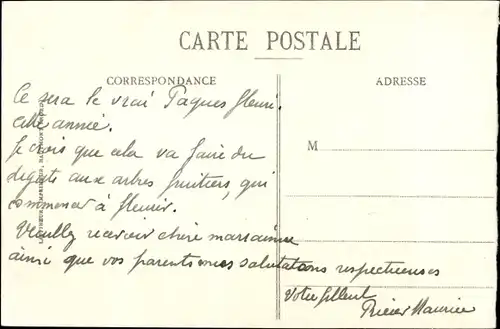 CARTE POSTALE
CORRESPONDANCE
ADRESSE
M
Ce sera le vrai Paques fleuri
cette année.
Je crois que cela va faire du
dégats aux arbres fruitiers, qui
commencer à fleurir.
Veuillez recevoir chère marraine
ainsi que vos parents mes salutations respectueuses
Votre filleul
Maurice